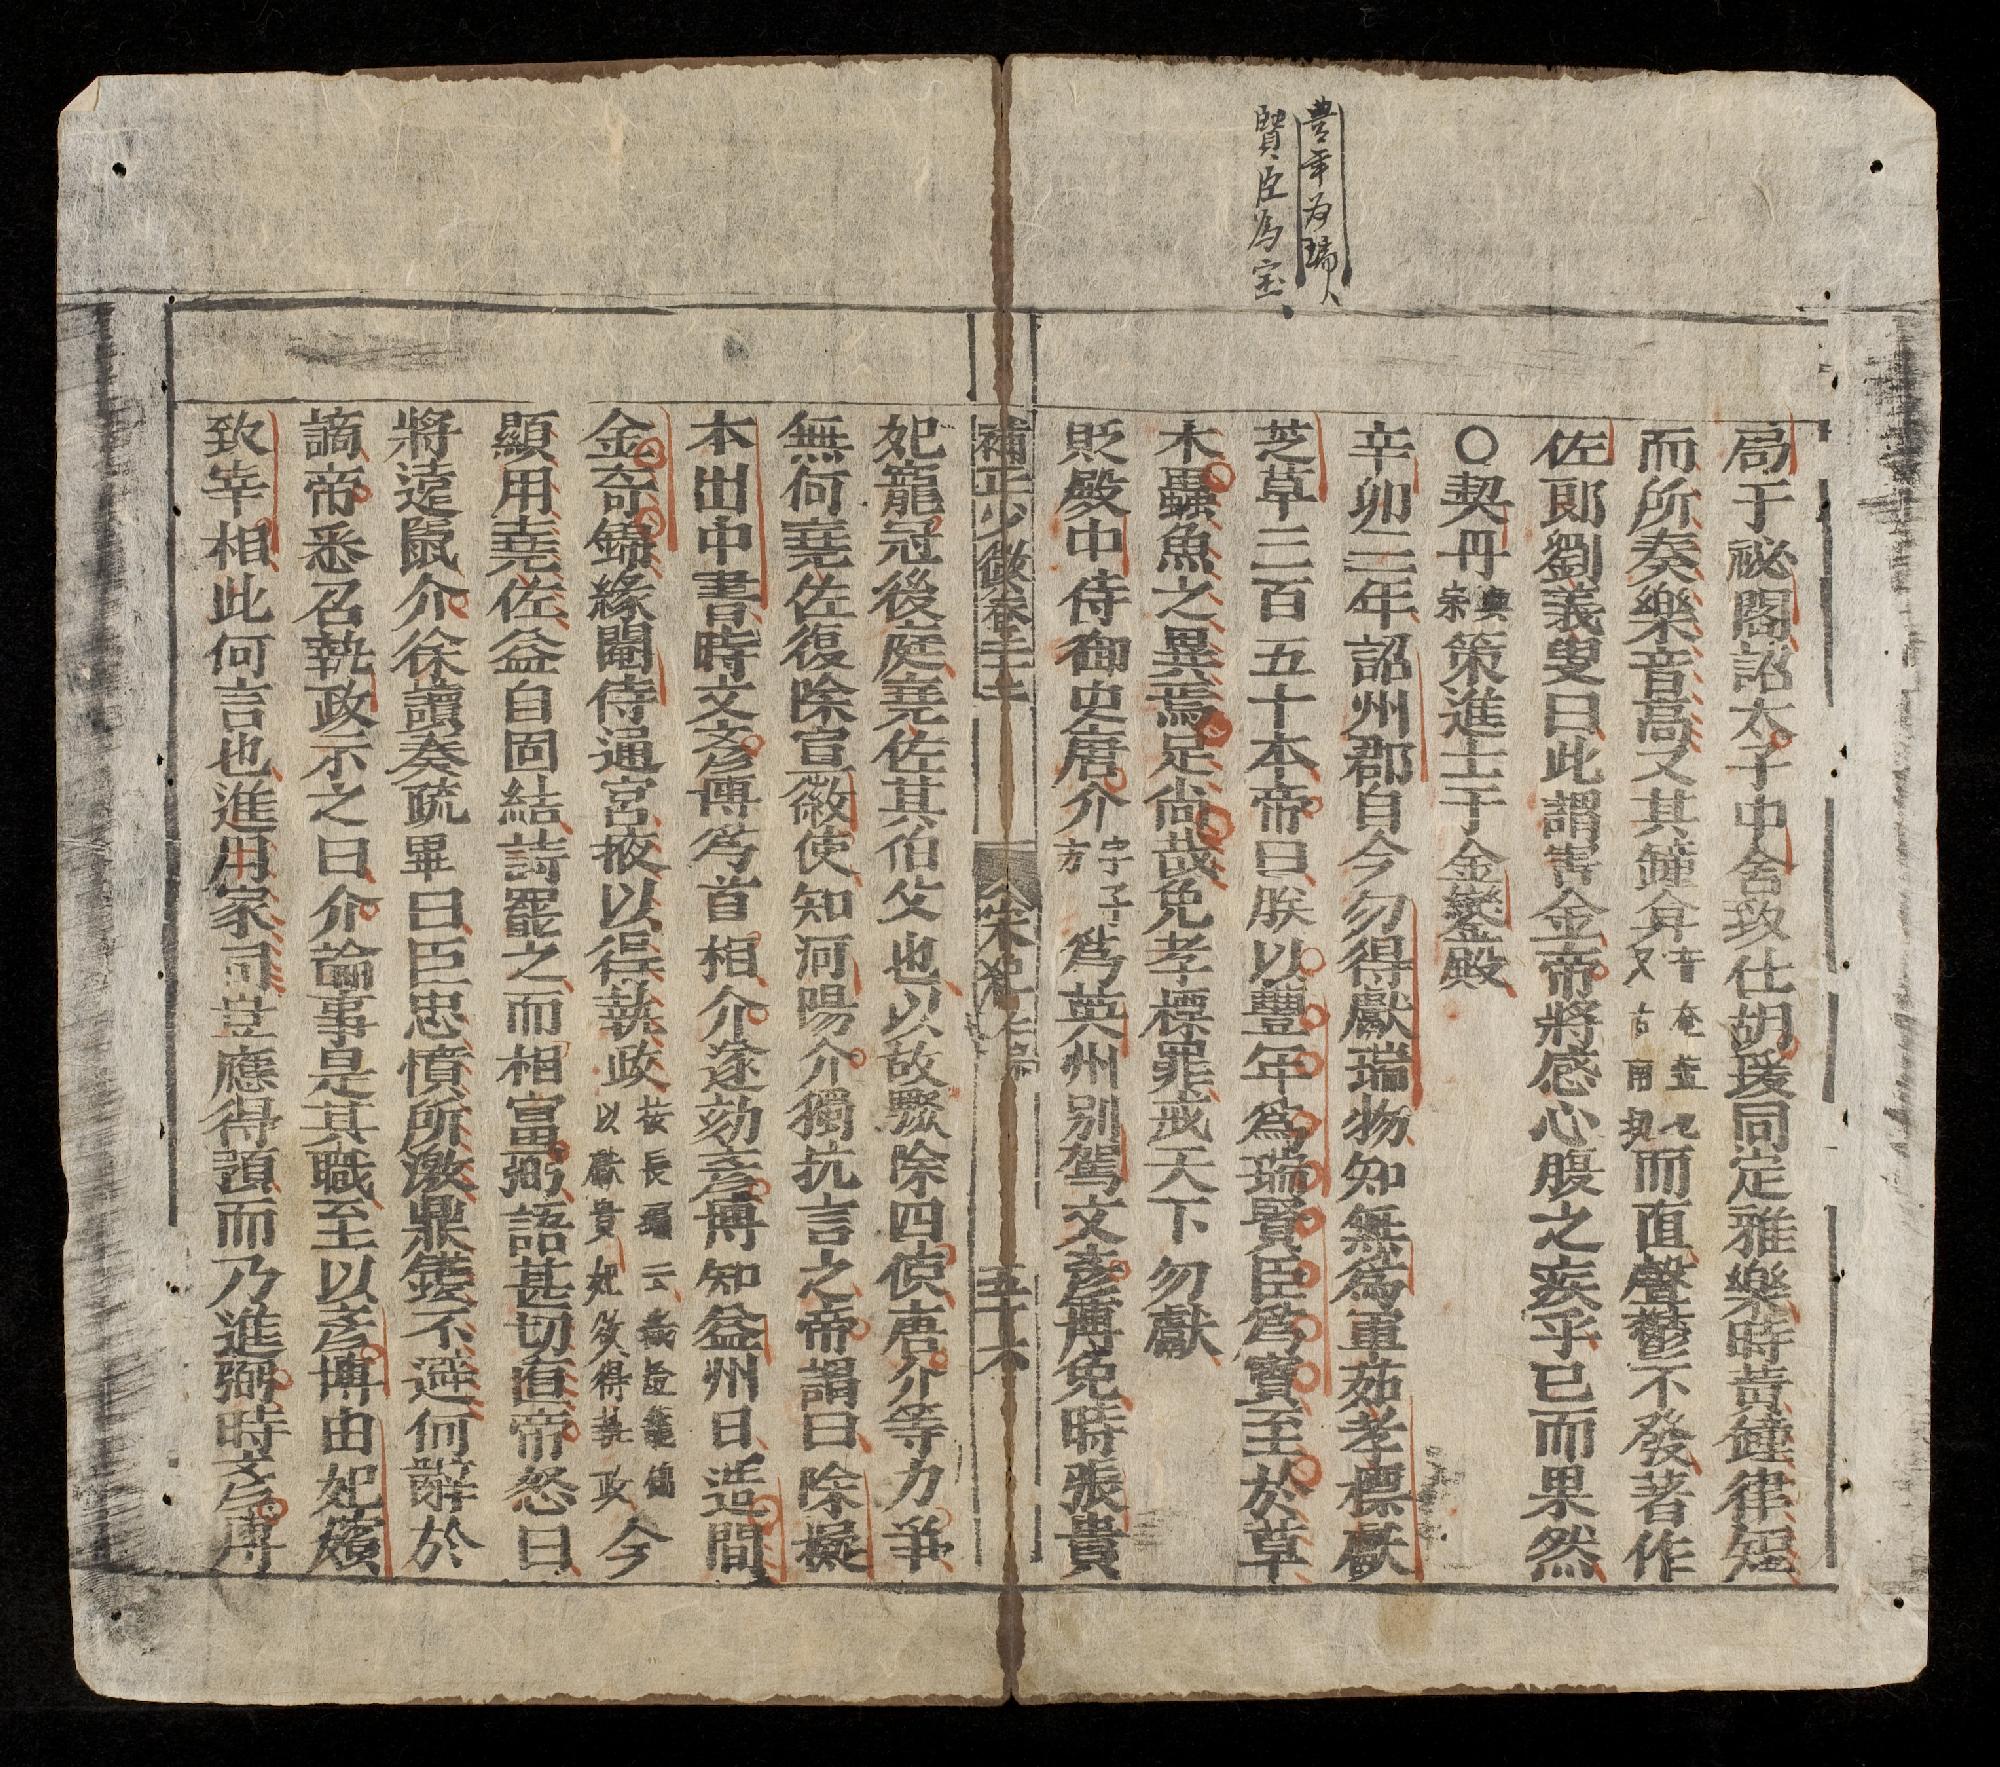 豊年为瑞
賢臣為宝
局于祕閣詔太子中舍致仕胡瑗同定雅樂時黃鐘律短
而所奏樂音高又其鐘弇音奄蓋也又古南切而直聲鬱不發著作
佐郎劉義叟曰此謂害金帝將感心腹之疾乎已而果然
○契丹興宗策進士于金鑾殿
辛卯三年詔州郡自今勿得獻瑞物知無為軍茹孝標獻
芝草三百五十本帝曰朕以豐年為瑞賢臣為寶至於草
木蟲魚之異焉足尚哉免孝標罪戒天下勿獻
貶殿中侍御史唐介字子方為英州別駕文彥博免時張貴
補正少微卷二十 宋紀 仁宗 五十六
妃寵冠後庭堯佐其伯父也以故驟除四使唐介等力爭
無何堯佐復除宣徽使知河陽介獨抗言之帝謂曰除擬
本出中書時文彥博為首相介遂劾彥博知益州日造間
金奇錦緣閹侍通宮掖以得執政按長編云織燈籠錦以獻貴妃致得執政今
顯用堯佐益自固結請罷之而相富弼語甚切直帝怒曰
將遠竄介徐讀奏疏畢曰臣忠憤所激鼎鑊不避何辭於
謫帝悉召執政示之曰介論事是其職至以彥博由妃嬪
致宰相此何言也進用冢司豈應得預而乃進弼時彥博